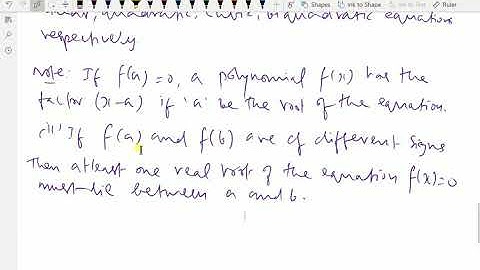 Shapes Ink to Shape Ruler
linear, quadratic, cubic, biquadratic equations
respectively
Note: If f(a)=0, a polynomial f(x) has the
factor (x-a) if 'a' be the root of the equation.
(ii) If f(a) and f(b) are of different signs
Then atleast one real root of the equation f(x)=0
must lie between a and b.